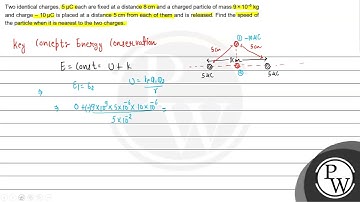 Two identical charges, 5 μC each are fixed at a distance 8 cm and a charged particle of mass 9 × 10⁻⁶ kg
and charge – 10 μC is placed at a distance 5 cm from each of them and is released. Find the speed of
the particle when it is nearest to the two charges.
Key Concept:- Energy Conservation
① -10μC
5cm 5cm
E = Const = U + K
5μC ② 5μC
⇒ E₁ = E₂ U = kQ₁Q₂/r
⇒ 0 + (-) 9×10⁹×5×10⁻⁶×10×10⁻⁶ =
5×10⁻²
PW